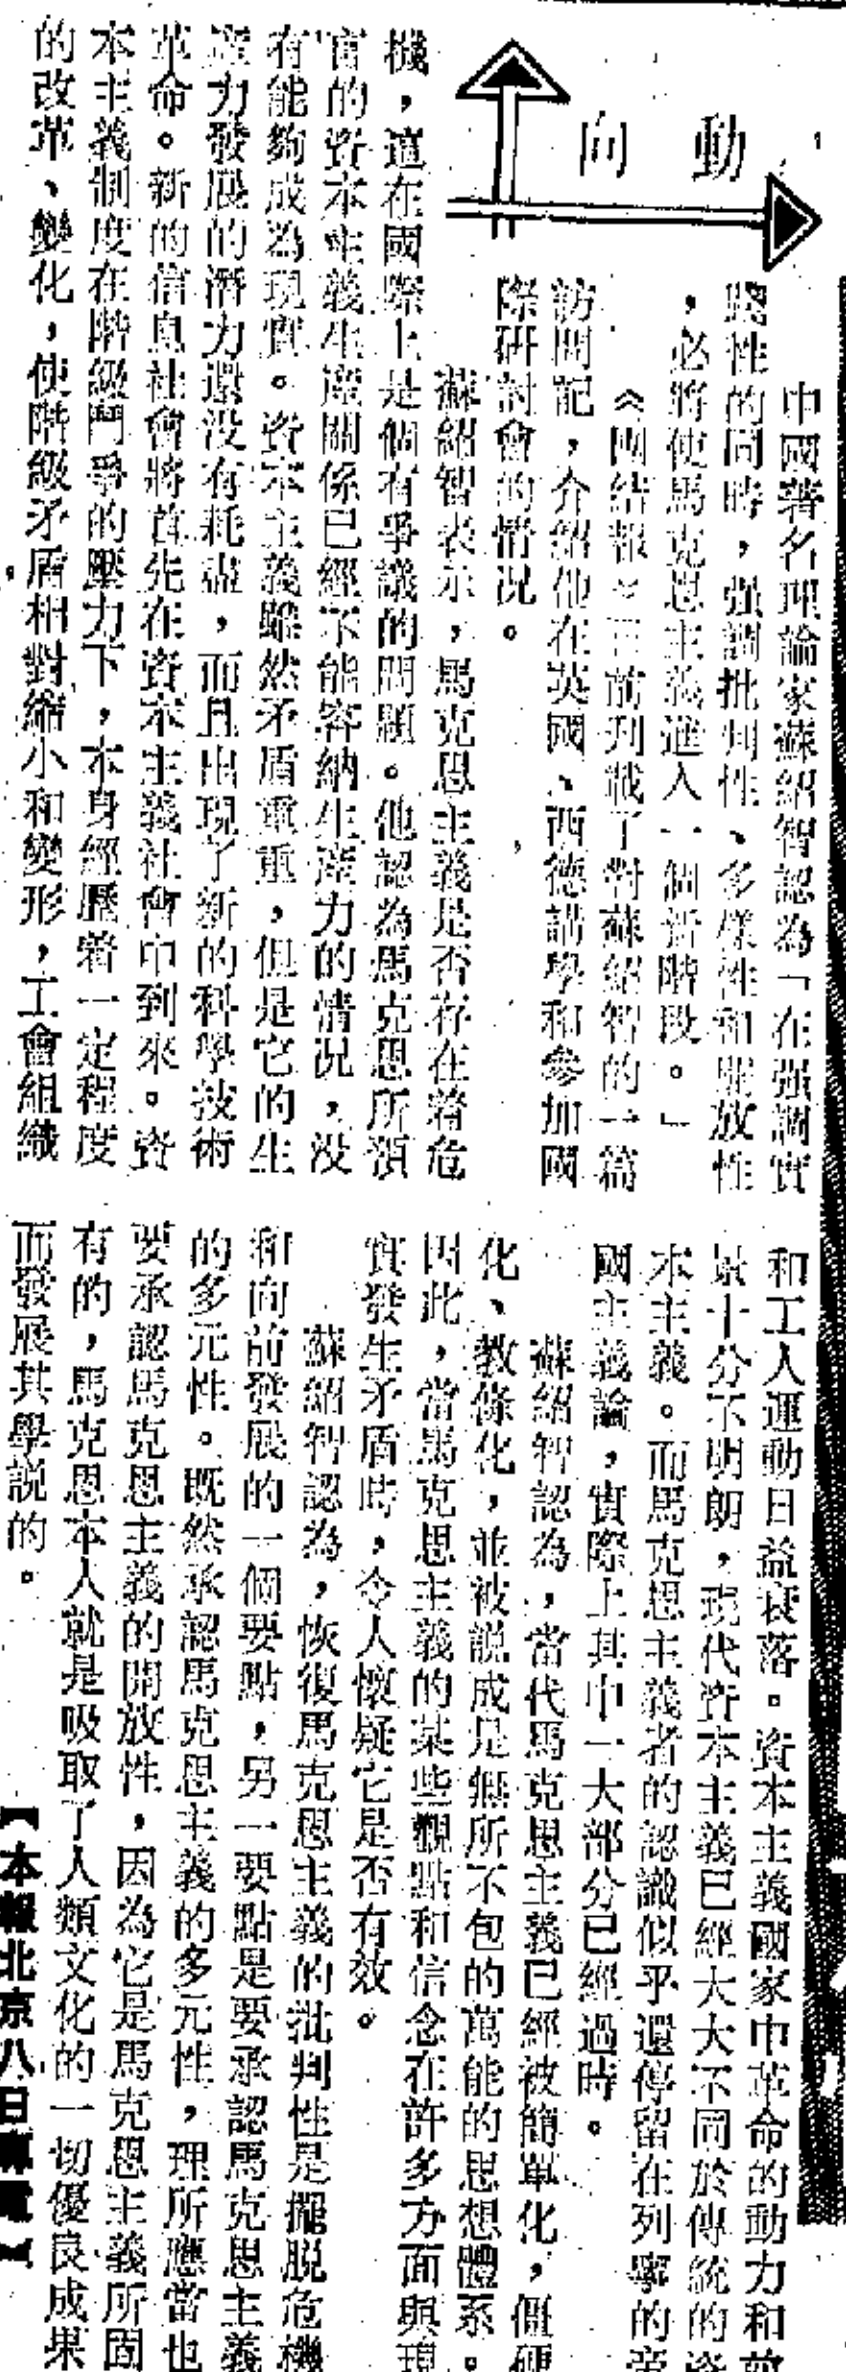 動向
中國著名理論家蘇紹智認為「在强調實
踐性的同時，强調批判性、多樣性和開放性
，必將使馬克思主義進入一個新階段。」
《團結報》日前刊載了對蘇紹智的一篇
訪問記，介紹他在英國、西德講學和參加國
際研討會的情況。
蘇紹智表示，馬克思主義是否存在着危
機，這在國際上是個有爭議的問題。他認為馬克思所預
言的資本主義生產關係已經不能容納生產力的情況，没
有能夠成為現實。資本主義雖然矛盾重重，但是它的生
產力發展的潛力還没有耗盡，而且出現了新的科學技術
革命。新的信息社會將首先在資本主義社會中到來。資
本主義制度在階級鬥爭的壓力下，本身經歷着一定程度
的改革、變化，使階級矛盾相對縮小和變形，工會組織
和工人運動日益衰落。資本主義國家中革命的動力和前
景十分不明朗，現代資本主義已經大大不同於傳統的資
本主義。而馬克思主義者的認識似乎還停留在列寧的帝
國主義論，實際上其中一大部分已經過時。
蘇紹智認為，當代馬克思主義已經被簡單化，僵硬
化、教條化，並被説成是無所不包的萬能的思想體系。
因此，當馬克思主義的某些觀點和信念在許多方面與現
實發生矛盾時，令人懷疑它是否有效。
蘇紹智認為，恢復馬克思主義的批判性是擺脱危機
和向前發展的一個要點，另一要點是要承認馬克思主義
的多元性。既然承認馬克思主義的多元性，理所應當也
要承認馬克思主義的開放性，因為它是馬克思主義所固
有的，馬克思本人就是吸取了人類文化的一切優良成果
而發展其學説的。
【本報北京八日專電】